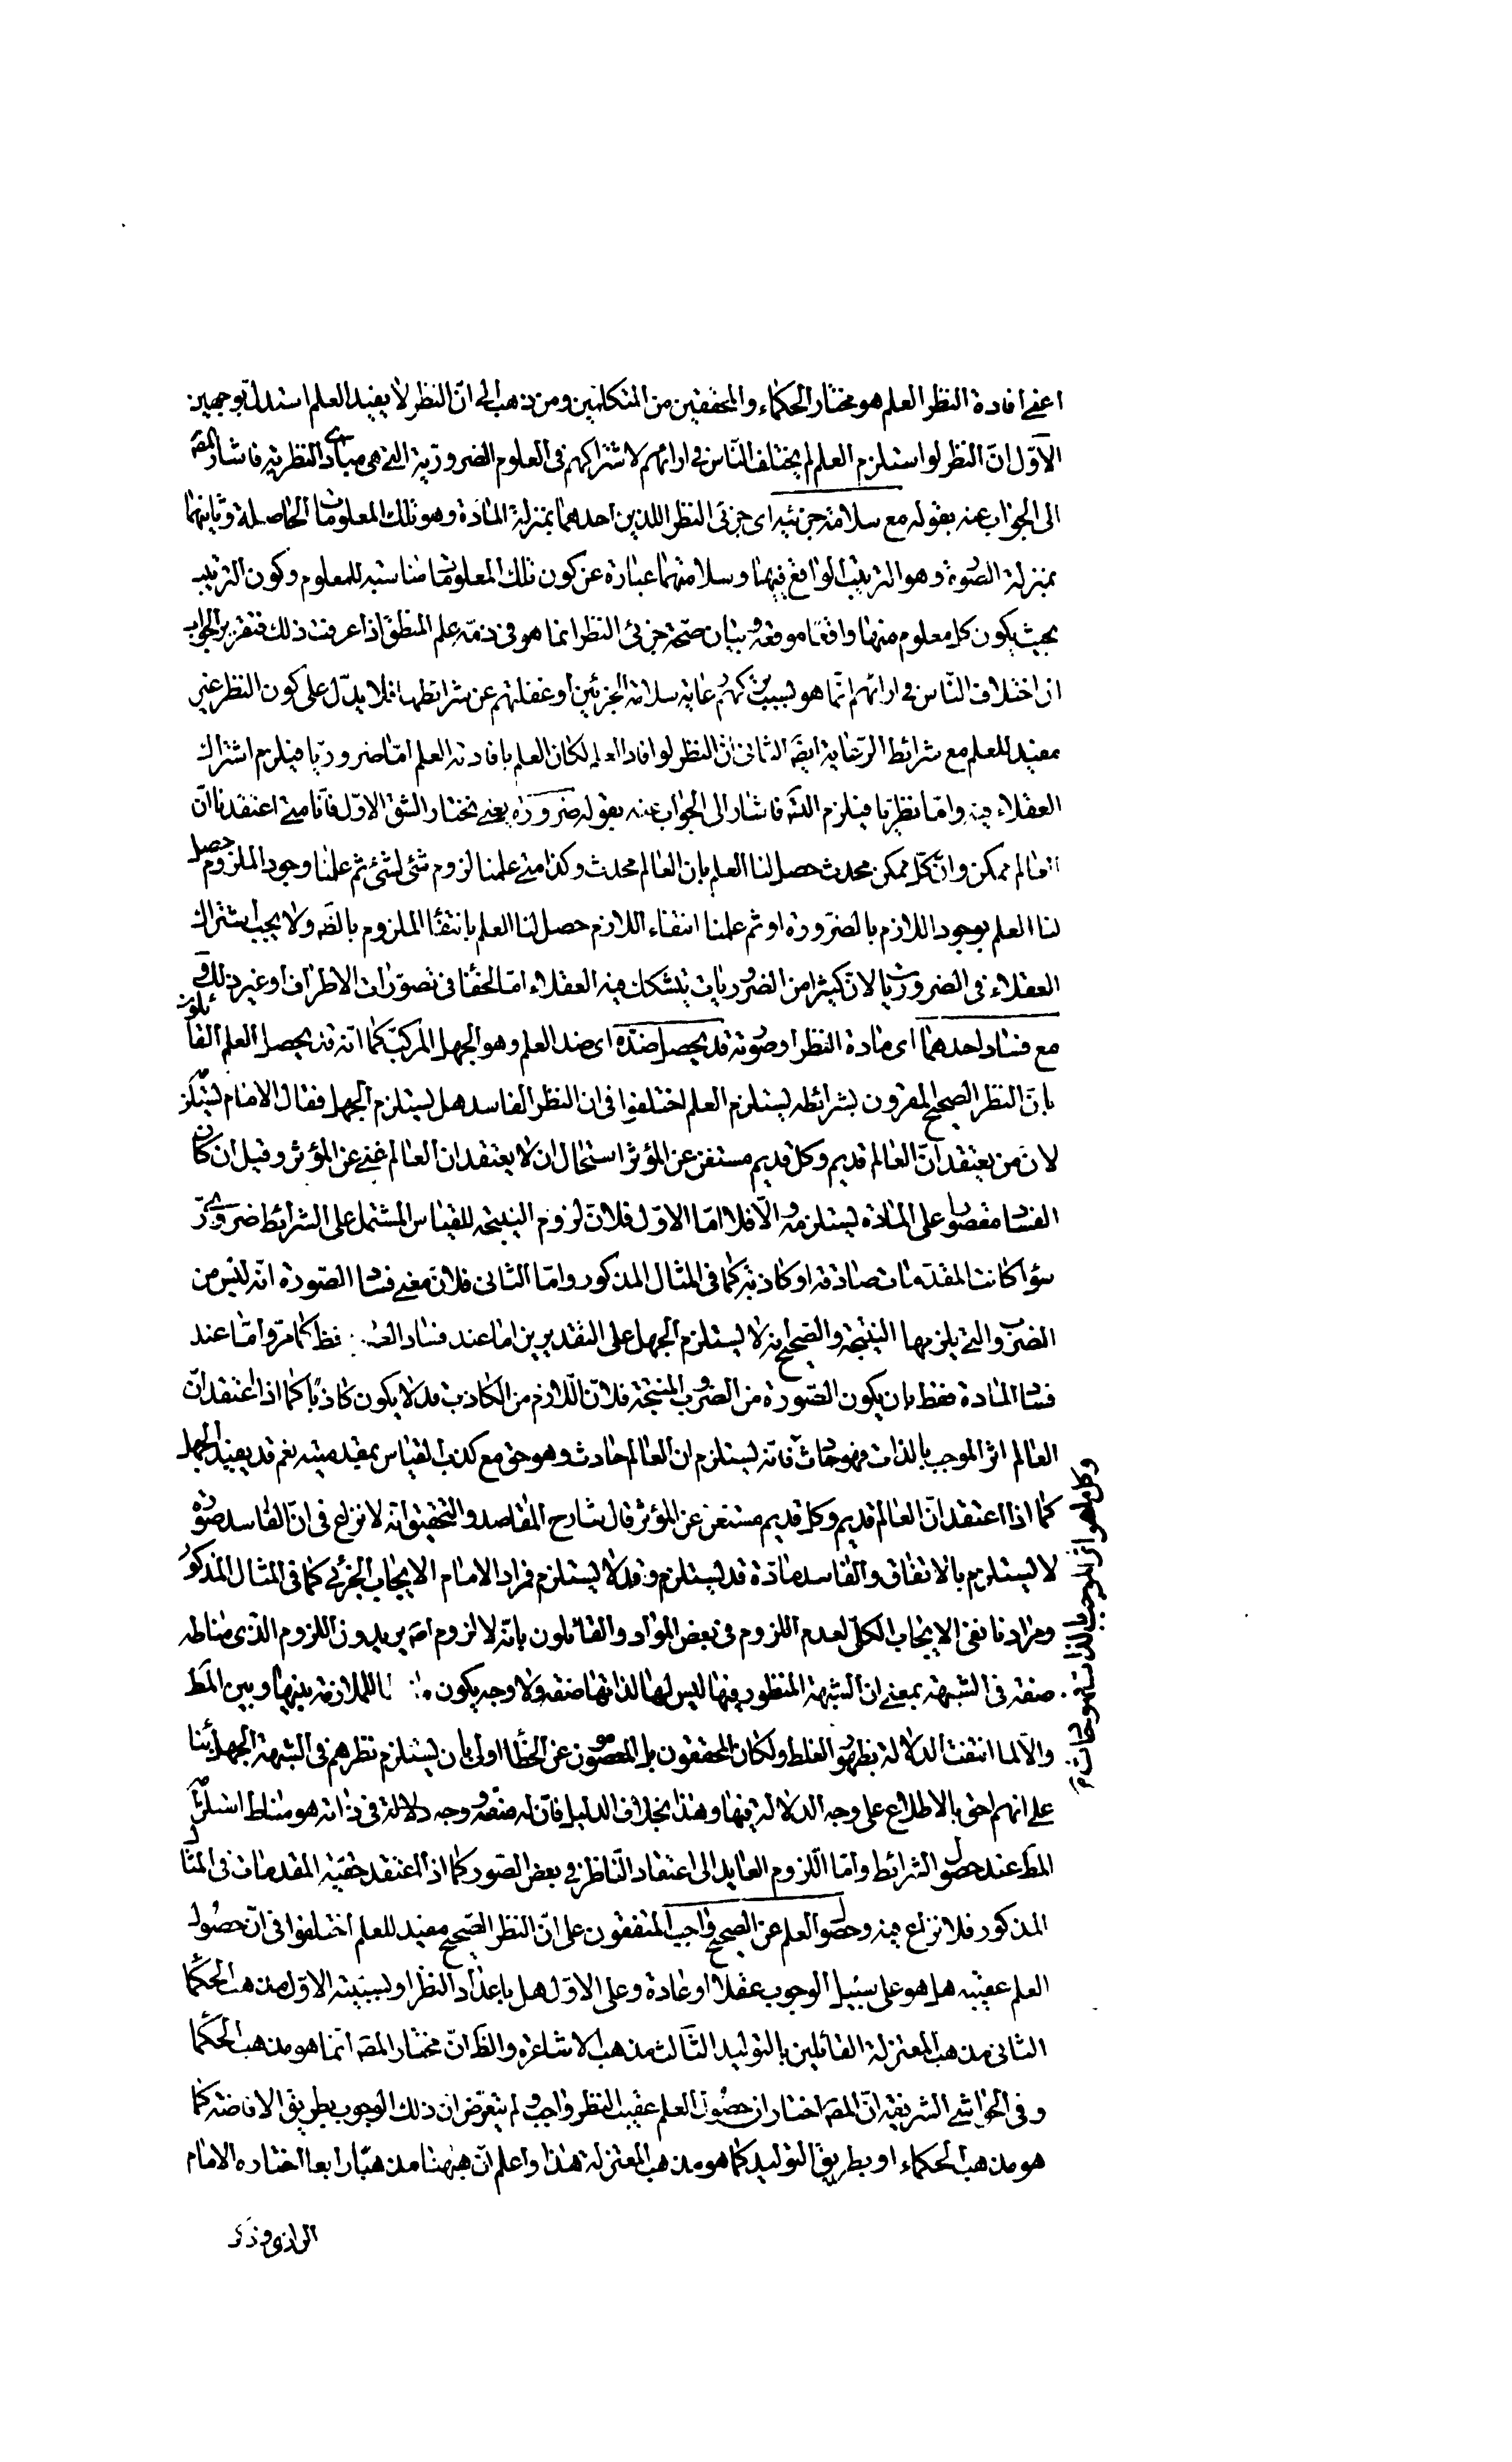 اعنى افادة النظر العلم هو مختار الحكماء والمحققين من المتكلمين ومن ذهب الى ان النظر لا يفيد العلم استدل بوجهين
الاول ان النظر لو استلزم العلم لم يختلف الناس فى ارائهم لاشتراكهم فى العلوم الضرورية التى هى مبادى النظرية فاشار المصه
الى الجواب عنه بقوله مع سلامة جزئيه اى جزئى النظر اللذين احدهما بمنزلة المادة وهو تلك المعلومات الحاصلة وثانيهما
بمنزلة الصورة وهو الترتيب الواقع فيهما وسلامتهما عبارة عن كون تلك المعلومات مناسبه للمعلوم وكون الترتيب
بحيث يكون كل معلوم منها واقعا موقعه وبيان صحة جزئى النظر انما هو فى ذمه علم المنطق اذا عرفت ذلك فتقرير الجواب
ان اختلاف الناس فى ارائهم انما هو بسبب تركهم رعاية سلامة الجزئين او غفلتهم عن شرائطها فلا يدل على كون النظر غير
مفيد للعلم مع شرائط الرعاية ايضا الثانى ان النظر لو افاد العلم لكان العلم بافادته العلم اما ضروريا فيلزم اشتراك
العقلاء فيه واما نظريا فيلزم التسه فاشار الى الجواب عنه بقوله ضرورة يعنى نختار الشق الاول فانا متى اعتقدنا ان
العالم ممكن وان كل ممكن محدث حصل لنا العلم بان العالم محدث وكذا متى علمنا لزوم شئ لشئ ثم علمنا وجود الملزوم حصل
لنا العلم بوجود اللازم بالضرورة او ثم علمنا انتفاء اللازم حصل لنا العلم بانتفاء الملزوم بالضه ولا يجب اشتراك
العقلاء فى الضروريات لان كثيرا من الضروريات يتشكك فيه العقلاء اما لخفاء فى تصورات الاطراف او غير ذلك و
مع فساد احدهما اى مادة النظر او صورته قد يحصل ضده اى ضد العلم وهو الجهل المركب كما انه قد يحصل العلم القائلون
بان النظر الصحيح المقرون بشرائطه يستلزم العلم اختلفوا فى ان النظر الفاسد هل يستلزم الجهل فقال الامام يستلزمه
لان من يعتقد ان العالم قديم وكل قديم مستغن عن المؤثر استحال ان لا يعتقد ان العالم غنى عن المؤثر وقيل ان كان
الفساد مقصورا على المادة يستلزمه والا فلا اما الاول فلان لزوم النتيجه للقياس المشتمل على الشرائط ضرورى
سواء كانت المقدمات صادقة او كاذبة كما فى المثال المذكور واما الثانى فلان معنى فساد الصورة انه ليس من
الضروب التى يلزمها النتيجة والصحيح انه لا يستلزم الجهل على التقديرين اما عند فساد فظ كما مر واما عند
فساد المادة فقط بان يكون الصورة من الضروب المنتجة فلان اللازم من الكاذب قد لا يكون كاذبا كما اذا اعتقد ان
العالم اثر الموجب بالذات فهو حادث فانه يستلزم ان العالم حادث وهو حق مع كذب القياس بمقدمتيه نعم قد يفيد الجهل
كما اذا اعتقد ان العالم قديم وكل قديم مستغن عن المؤثر قال شارح المقاصد والتحقيق انه لا نزاع فى ان الفاسد صورة
لا يستلزم بالاتفاق والفاسد مادة قد يستلزم وقد لا يستلزم فمراد الامام الايجاب الجزئى كما فى المثال المذكور
ومرادنا نفى الايجاب الكلى لعدم اللزوم فى بعض المواد والقائلون بانه لا لزوم اصه يريدون اللزوم الذى مناطه
صفة فى الشبهة بمعنى ان الشبهة المنظور فيها ليس لها لذاتها صفه ولا وجه يكون للملازمة بينها وبين المط
والا لما انتفت الدلالة بظهور الغلط ولكان المحققون بل المعصومون عن الخطا اولى بان يستلزم نظرهم فى الشبهة الجهل بنا
على انهم احق بالاطلاع على وجه الدلالة فيها وهذا بخلاف الدليل فان له صفة ووجه دلالة فى ذاته هو مناط استلزامه
المط عند حصول الشرائط واما اللزوم العايد الى اعتقاد الناظر فى بعض الصور كما اذا اعتقد حقيه المقدمات فى المثال
المذكور فلا نزاع فيه وحصول العلم عن الصحيح واجب المتفقون على ان النظر الصحيح مفيد للعلم اختلفوا فى ان حصول
العلم عقيبه هل هو على سبيل الوجوب عقلا او عادة وعلى الاول هل باعداد النظر او بسببيته الاول مذهب الحكما
الثانى مذهب المعتزلة القائلين بالتوليد الثالث مذهب الاشاعرة والظ ان مختار المصه انما هو مذهب الحكما
وفى الحواشى الشريفية ان المصه اختار ان حصول العلم عقيب النظر واجب ولم يتعرض ان ذلك الوجوب بطريق الافاضة كما
هو مذهب الحكماء او بطريق التوليد كما هو مذهب المعتزلة هذا واعلم ان ههنا مذهبا رابعا اختاره الامام
الرازى وذكر
وكل ما هو اثر الموجب بالذات فهو حادث